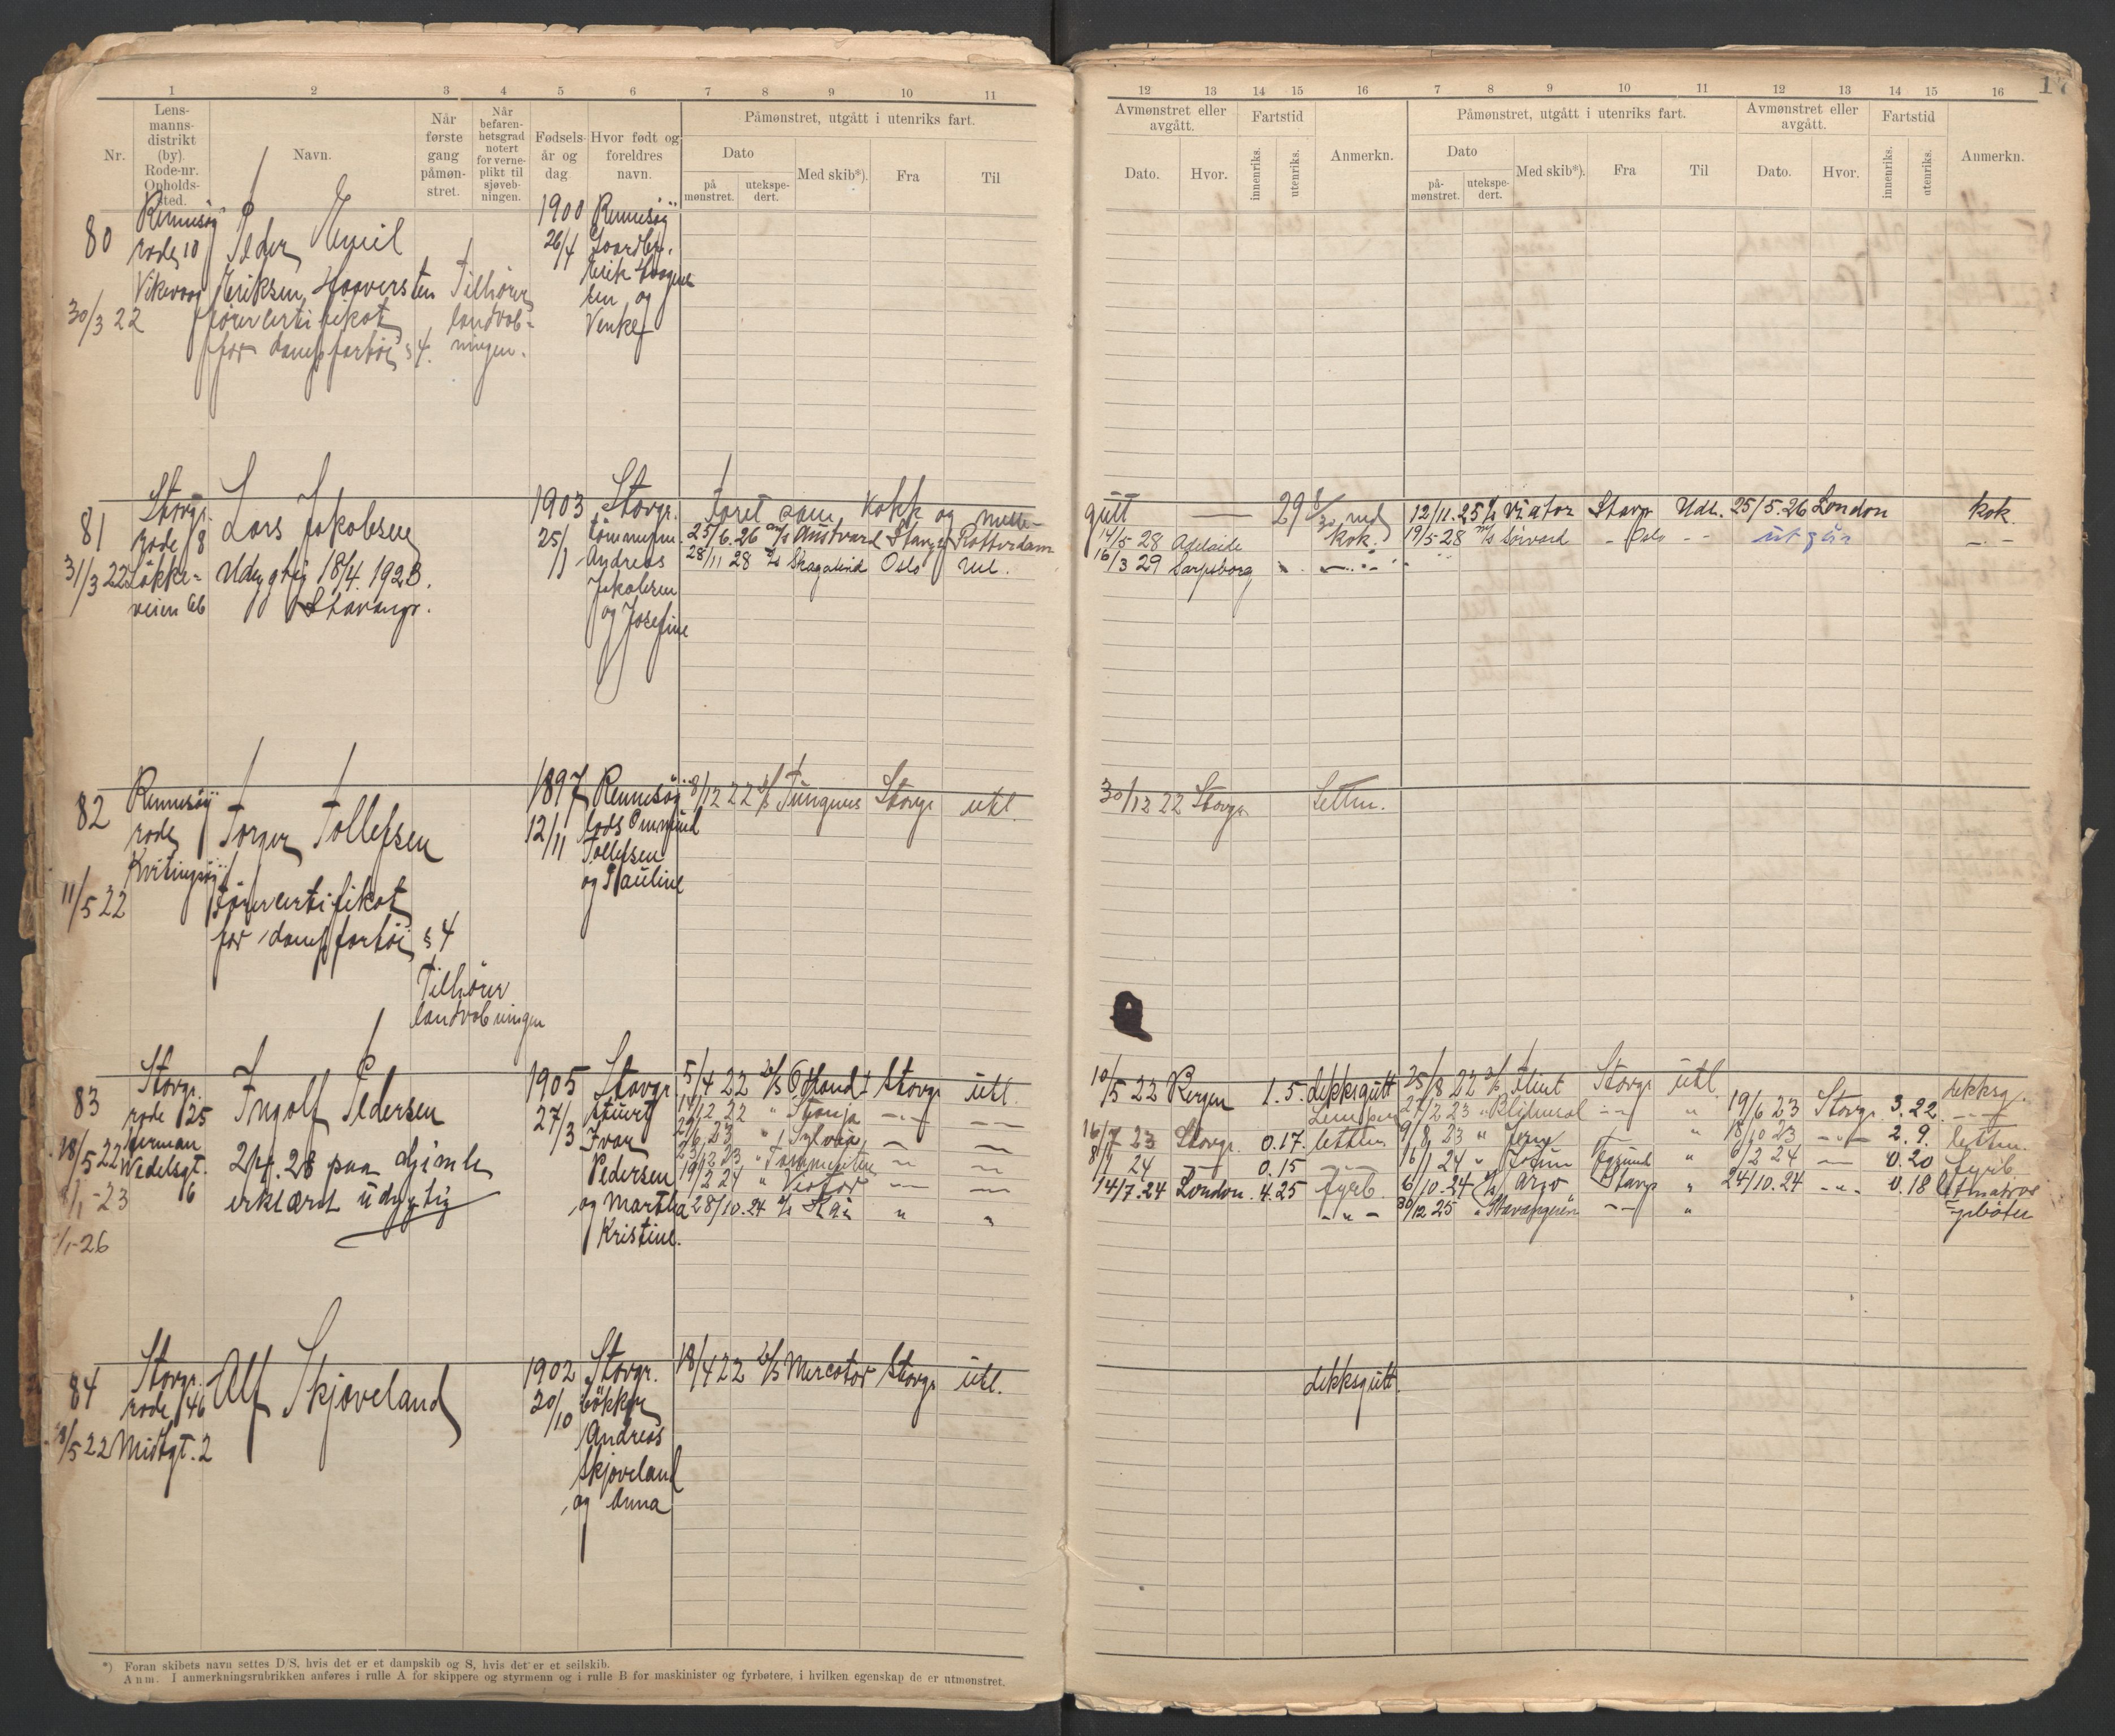 17
1 2 3 4 5 6 7 8 9 10 11
Nr.
Lens-
manns-
distrikt
(by).
Rode-nr.
Opholds-
sted.
Navn.
Når
første
gang
påmøn-
stret.
Når
befaren-
hetsgrad
notert
for verne-
plikt til
sjøveb-
ningen.
Fødsels-
år og
dag
Hvor født og
foreldres
navn.
Påmønstret, utgått i utenriks fart.
Dato
på
mønstret.
utekspe-
dert.
Med skib*).
Fra
Til
12 13 14 15 16 7 8 9 10 11 12 13 14 15 16
Avmønstret eller
avgått.
Dato.
Hvor.
Fartstid
innenriks.
utenriks.
Anmerkn.
Påmønstret, utgått i utenriks fart.
Dato
på-
mønstret.
utekspe-
dert.
Med skib*).
Fra
Til
Avmønstret eller
avgått.
Dato.
Hvor.
Fartstid
innenriks.
utenriks.
Anmerkn.
80
30/3 22
Rennesöy
rode 10
Vikevaag
Peder Emil
Eriksen Haaversten
förercertifikat
for dampfartöi § 4.
Tilhörer
landvæb-
ningen.
1900
26/4
Rennesöy
Gaardbr.
Erik
sen og
Venke
81
31/3 22
Stavgr.
rode 8
Lökke-
veien 66
Lars Jakobsen
Udygtig 18/4 1923.
Stavangr.
1903
25/1
Stavgr.
tömmerm.
Andreas
Jakobsen
og Josefine
Faret som Kokk og
gutt — 29
kok.
23/6.26 m/s Austvard Stavgr Rotterdam
14/5-28 Adelaide
28/11 28 Skagatind Oslo Utl.
16/3 29 Sarpsborg
12/11.25 Viator Stavgr Udl. 25/5-26 London kok.
19/5-28 m/s Sörvard Oslo utgår
82
11/5 22
Rennesöy
rode
Kvitingsöy
Torger Tollefsen
förercertifikat
for dampfartöi § 4
Tilhörer
landvæbningen
1897
12/11
Rennesöy
lods Ommund
Tollefsen
og Pauline
8/12 22 d/s Tungenes Stavgr utl.
30/12 22 Stavgr. lettm.
83
18/5 22
1/1-23
1/1-26
Stavgr.
rode 25
Herman
Wedelsgt.
6
Ingolf Pedersen
2/4.28 paa djimle
erklæret udygtig
1905
27/3
Stavgr
stuert
Ivar
Pedersen
og Martha
Kristine.
5/4 22 d/s Otland Stavgr utl.
10/5 22 Bergen 1.5. dekksgutt
25/8 22 d/s Flint Stavgr utl.
dekksg.
19/6 23 Stavgr. 3.22.
" Sylvia
16/7 23 Stavgr. 0.17. lettm.
9/8 23 " 18/10 23 2.9. lettm.
8/1 24 0.15
16/1 24 " Jotun Egersund " 6/2 24 0.20 fyrb
19/2 24 "
14/7.24 London. 4.25 fyrb.
6/10-24 Argo Stavgr " 24/10.24 0.18 letmatros
28/10.24 d/s Kai " "
30/12 25 " Stavangeren "
Fyrböter
84
18/5 22
Stavgr.
rode 46
Midtgt. 2
Alf Skjæveland
1902
20/10
Stavgr.
bökker
Andreas
Skjæveland
og Anna
18/4 22 d/s Mercator Stavgr utl.
dekksgutt.
*) Foran skibets navn settes D/S, hvis det er et dampskib og S, hvis det er et seilskib.
Anm. I anmerkningsrubrikken anføres i rulle A for skippere og styrmenn og i rulle B for maskinister og fyrbøtere, i hvilken egenskap de er utmønstret.